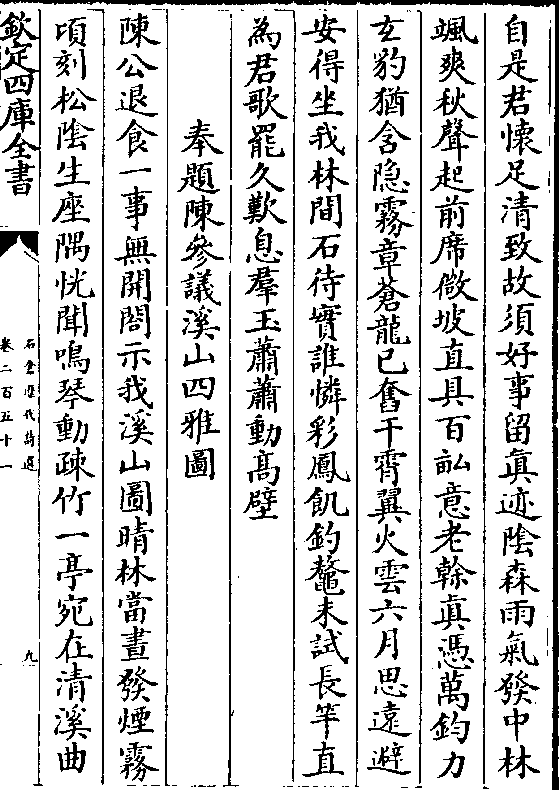 自是君懷足清致故須好事留真迹陰森雨氣發中林
颯爽秋聲起前席倣坡直具百畝意老榦真憑萬鈞力
玄豹猶含隐霧章蒼龍已奮干霄翼火雲六月思遠避
安得坐我林間石待實誰憐彩鳳飢釣鼇未試長竿直
為君歌罷久歎息羣玉蕭蕭動髙壁
奉題陳參議溪山四雅圖
陳公退食一事無開閤示我溪山圖晴林當晝發煙霧
頃刻松陰生座隅恍聞鳴琴動疎竹一亭宛在清溪曲
欽定四庫全書
石倉歴代詩選
卷二百五十一
九